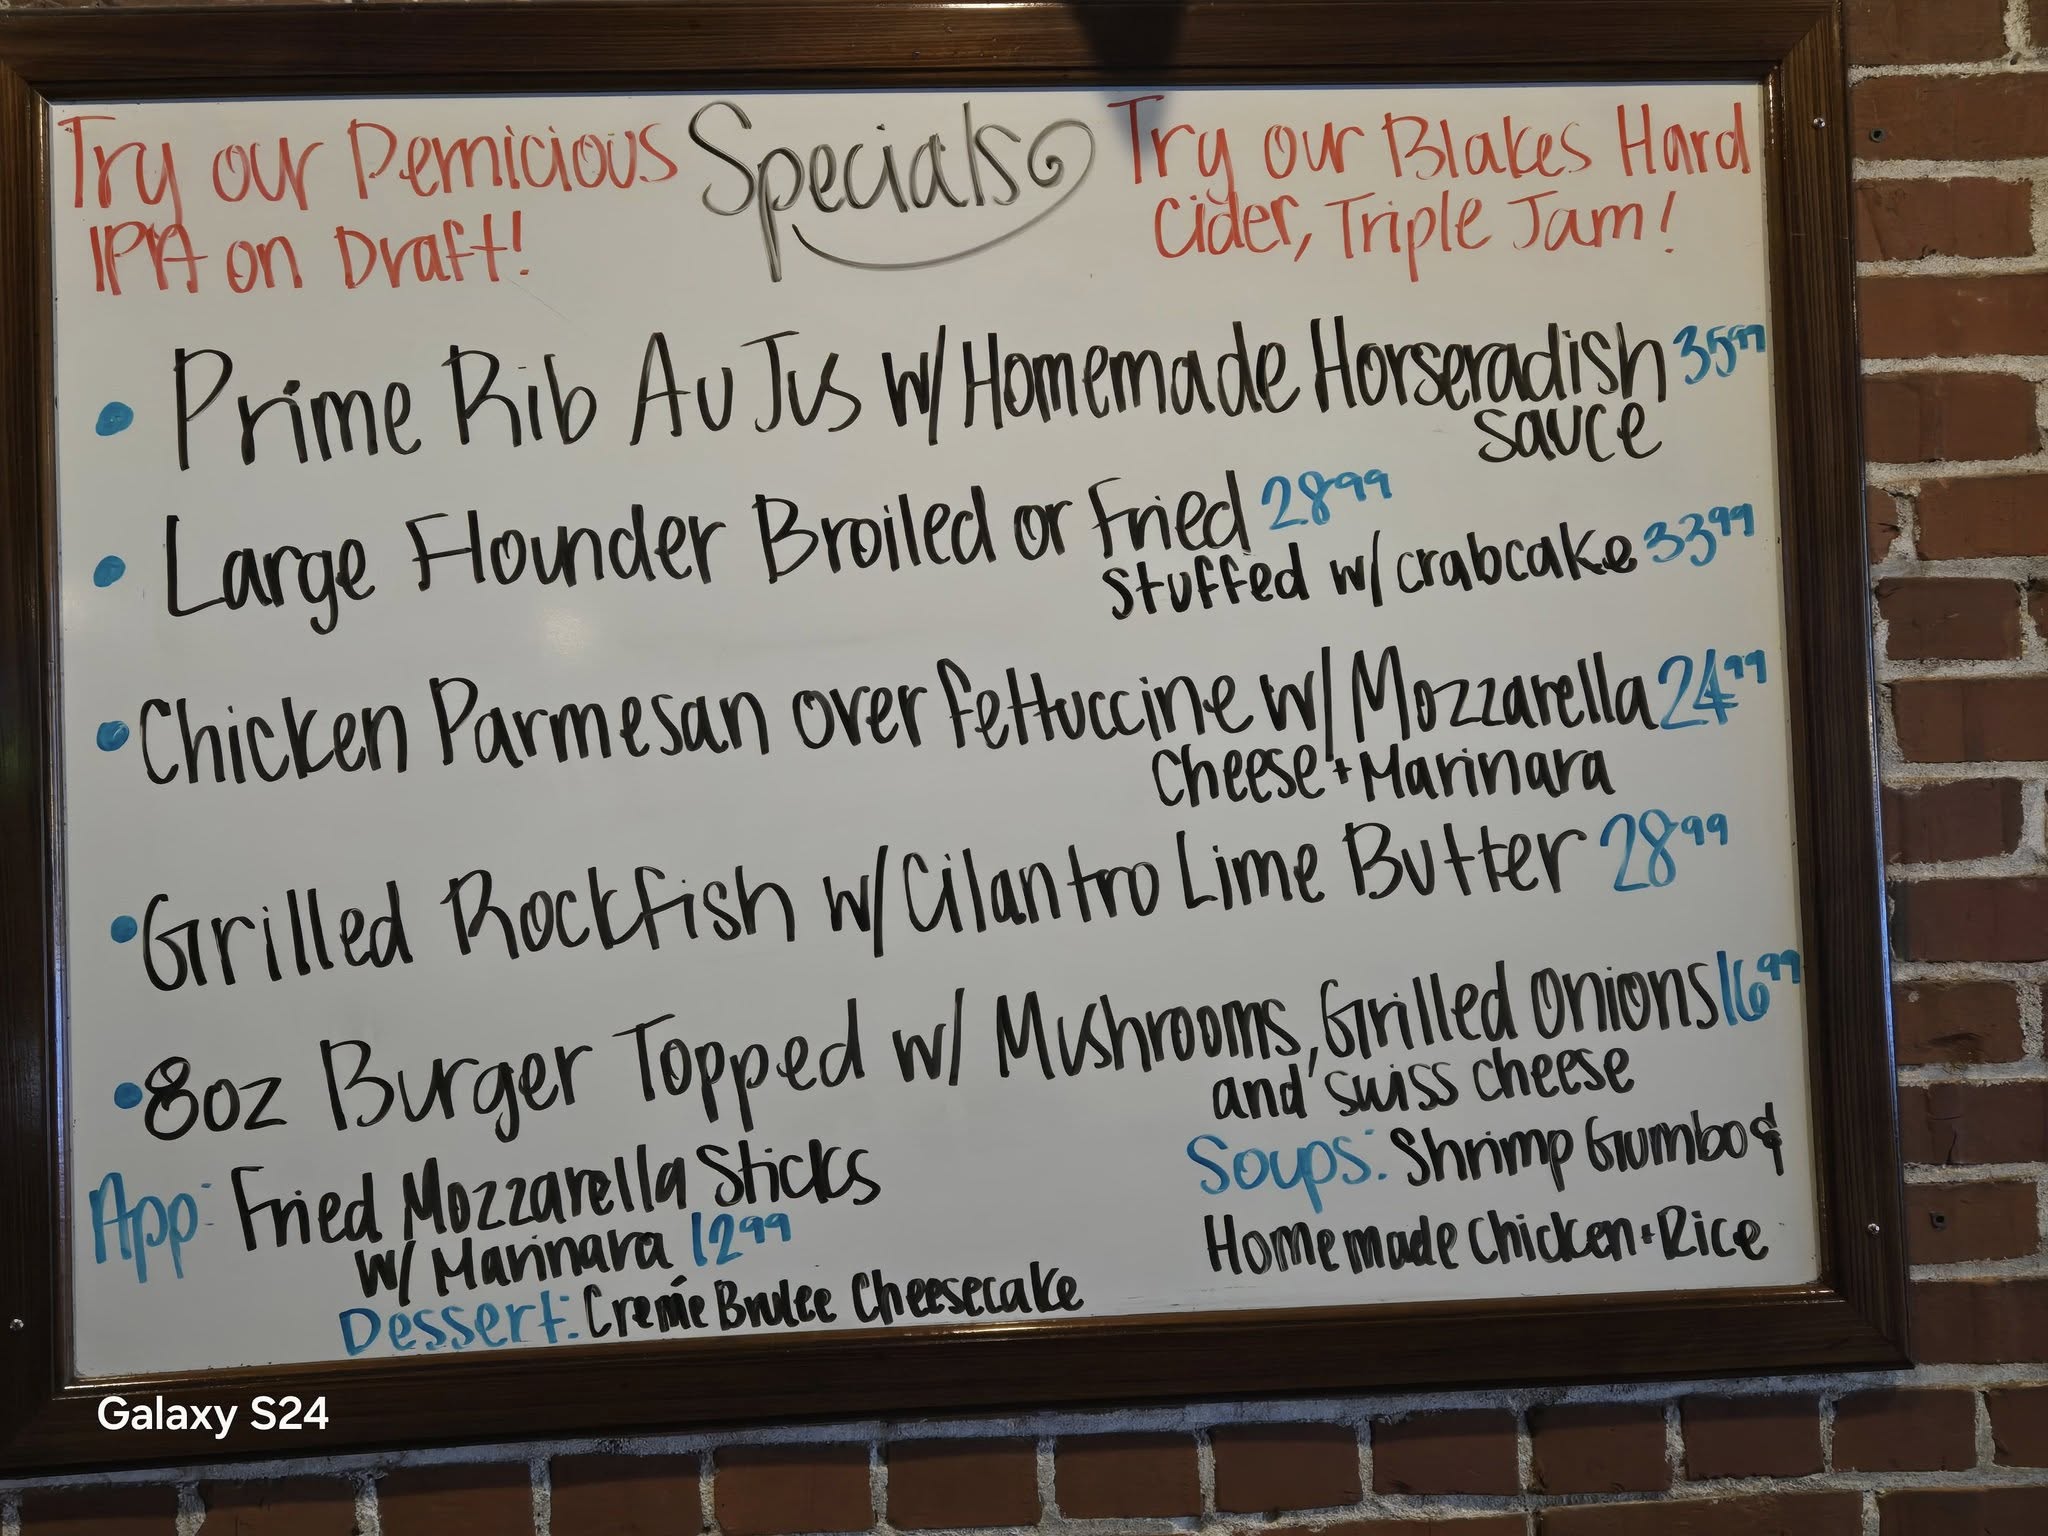 Try our Pernicious
IPA on Draft!
Specials
Try our Blakes Hard
Cider, Triple Jam!
• Prime Rib Au Jus w/ Homemade Horseradish 35.99
sauce
• Large Flounder Broiled or Fried 28.99
stuffed w/ crabcake 33.99
• Chicken Parmesan over fettuccine w/ Mozzarella 24.99
Cheese + Marinara
• Grilled Rockfish w/ Cilantro Lime Butter 28.99
• 8oz Burger Topped w/ Mushrooms, Grilled Onions 16.99
and swiss cheese
App: Fried Mozzarella Sticks
w/ Marinara 12.99
Dessert: Creme Brulee Cheesecake
Soups: Shrimp Gumbo &
Homemade Chicken + Rice
Galaxy S24